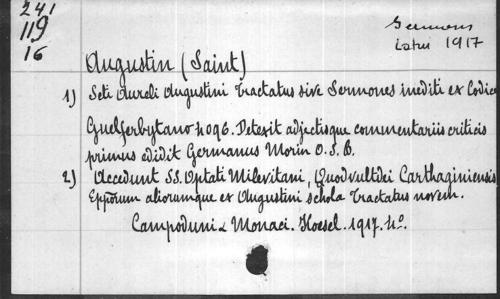 241
119
16
Sermons
latin 1917
Augustin (Saint)
1) Scti Aureli Augustini Tractatus sive Sermones inediti ex Codice
Guelferbytano 4096. Detexit adjectisque commentariis criticis
primus edidit Germanus Morin O.S.B.
2) Accedunt SS. Optati Milevitani, Quodvultdei Carthaginiensis
Epporum aliorumque ex Augustini schola Tractatus novem.
Campoduni & Monaci. Koesel. 1917. 4o.